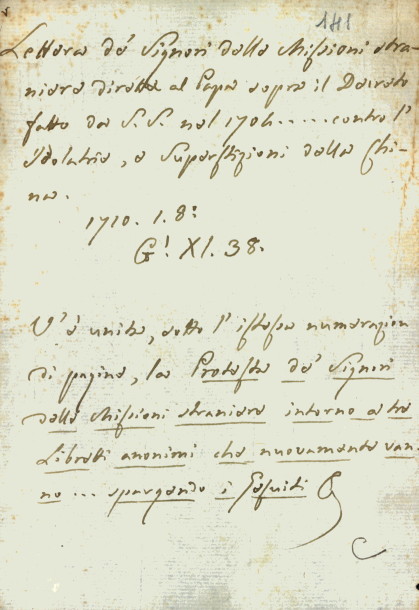 141
Lettera de' Signori delle Missioni stra-
niere diretta al Papa sopra il Decreto
fatto da S. S. nel 1704...... contro l'
Idolatrie, e Superstizioni della Chi-
na.
1710. 1. 8:
G! XI. 38.
V'è unita, sotto l'istessa numerazion
di pagine, la Protesta de' Signori
delle Missioni straniere intorno a tre
Libretti anonimi che nuovamente van-
no ... spargendo i Gesuiti